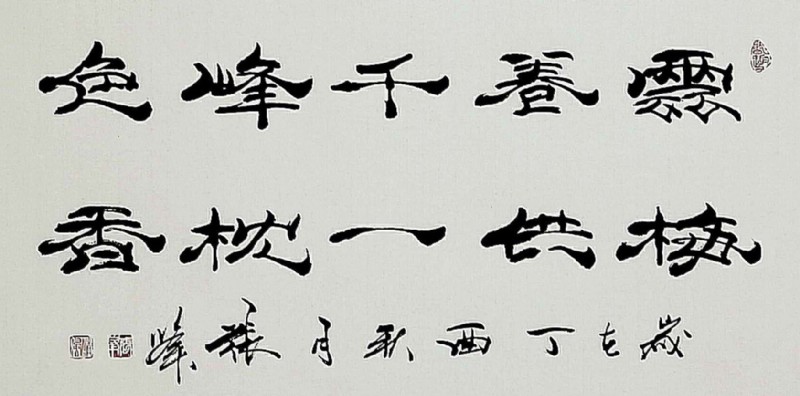 千峰色
梅供一枕香
歲在丁酉秋月張峰